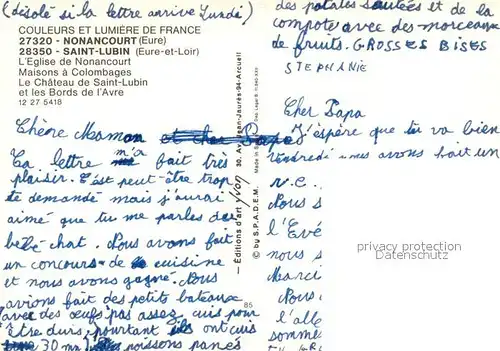 (désolé si la lettre arrive Lundi)
COULEURS ET LUMIÈRE DE FRANCE
27320 - NONANCOURT (Eure)
28350 - SAINT-LUBIN (Eure-et-Loir)
L'Eglise de Nonancourt
Maisons à Colombages
Le Château de Saint-Lubin
et les Bords de l'Avre
12 27 5418
Chère Maman et cher Papa
Ta lettre m'a fait très
plaisir. C'est peut-être trop
te demandé mais j'aurai
aimé que tu me parles du
bébé chat. Nous avons fait
un concours de cuisine
et nous avons gagné. Nous
avions fait des petits bateaux
avec des œufs pas assez cuis pour
être durs, pourtant ils ont cuis
30 mn poissons panés
Editions d'art yvon 30, Av. Jean-Jaurès-94-Arcueil
© by S.P.A.D.E.M.
85
patates sautées et de la
compote avec des morceaux
de fruits. GROSSES BISES
STEPHANIE
Cher Papa
J'espère que tu va bien
Vendredi nous avons fait un
Nous
l'Evé
Nous
Marci
Nous
l'alle
somme
privacy protection
Datenschutz